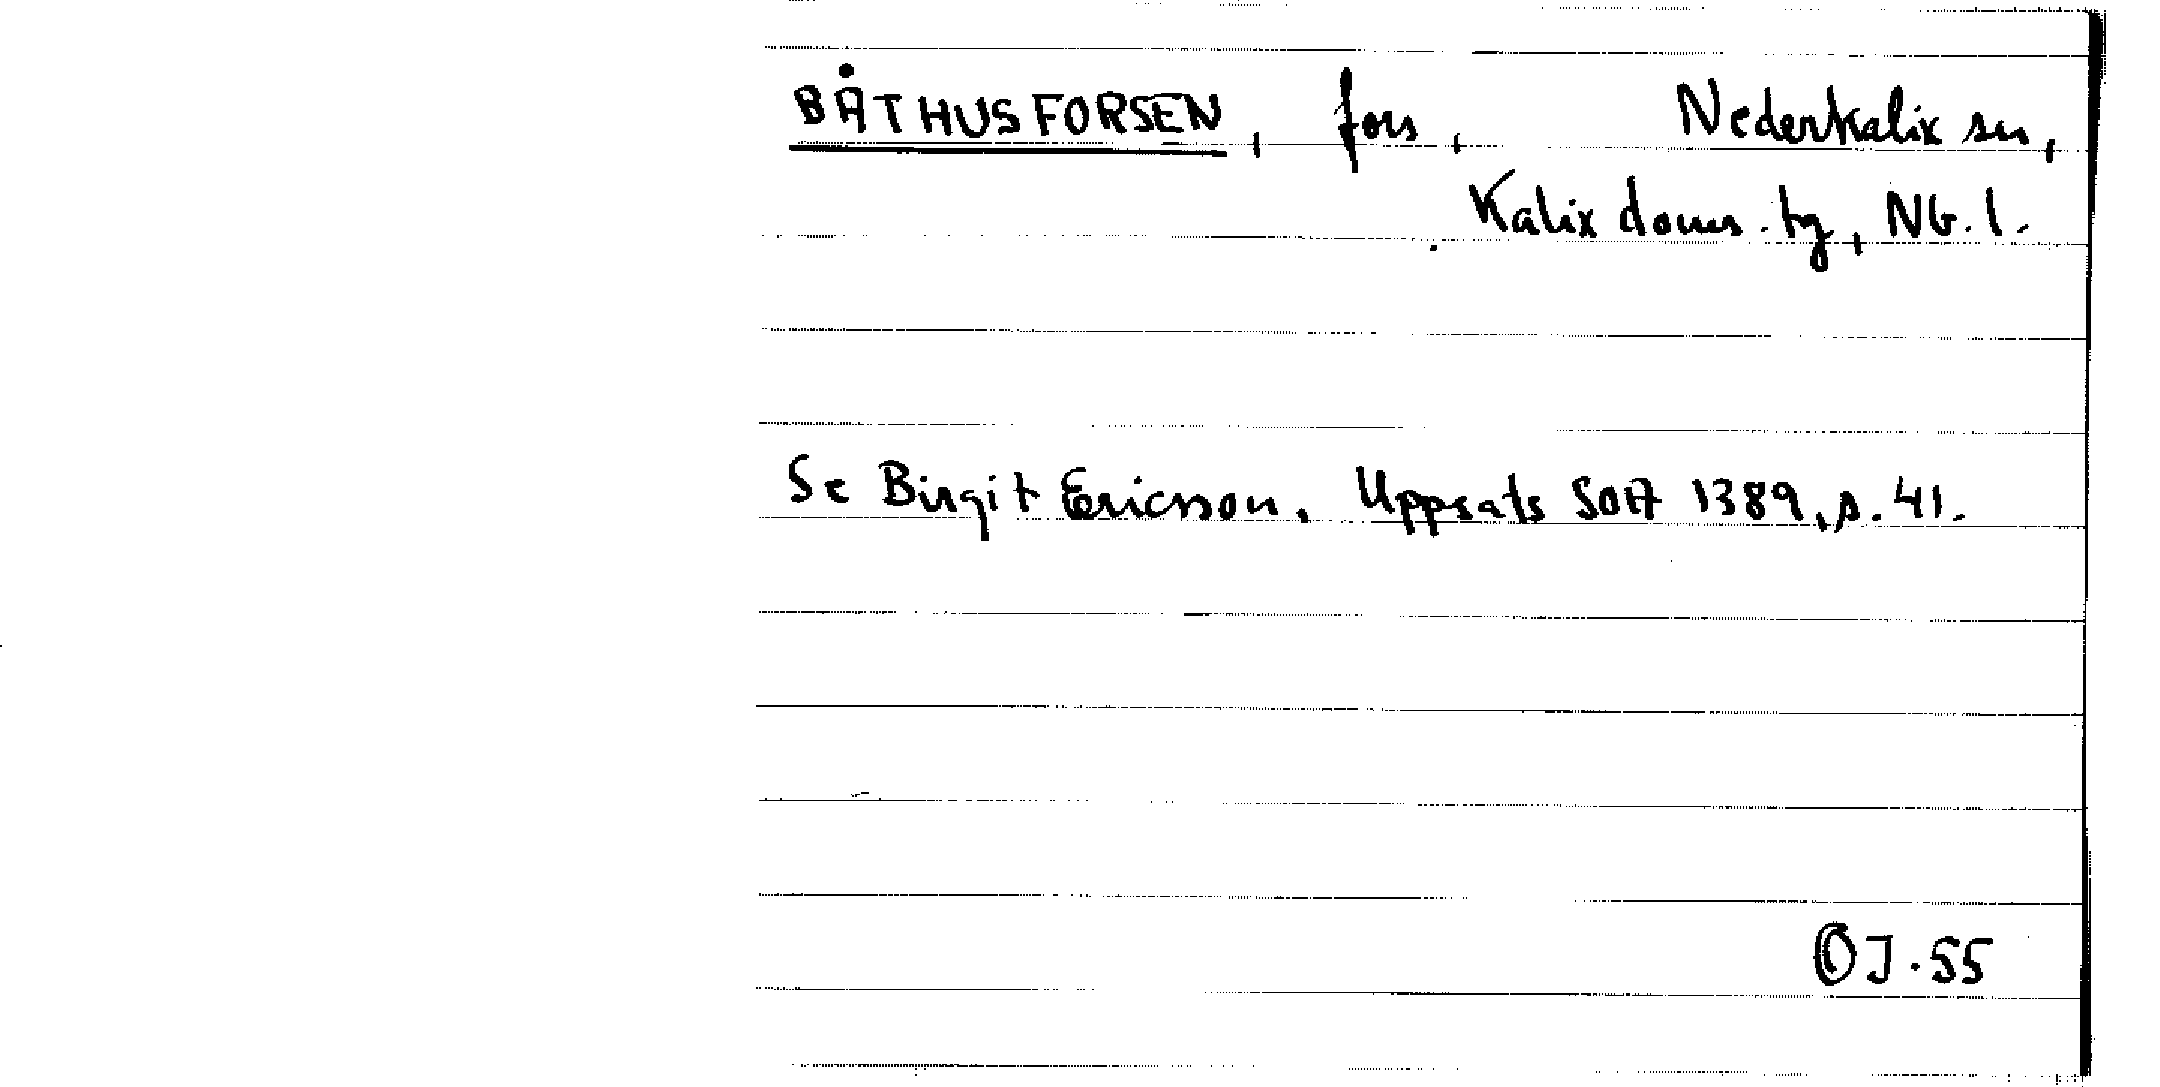 BÅTHUSFORSEN, fors, Nederkalix sn,
Kalix doms.tg, Nb.l.
Se Birgit Ericsson. Uppsats SOA 1389, s. 41.
OJ.55